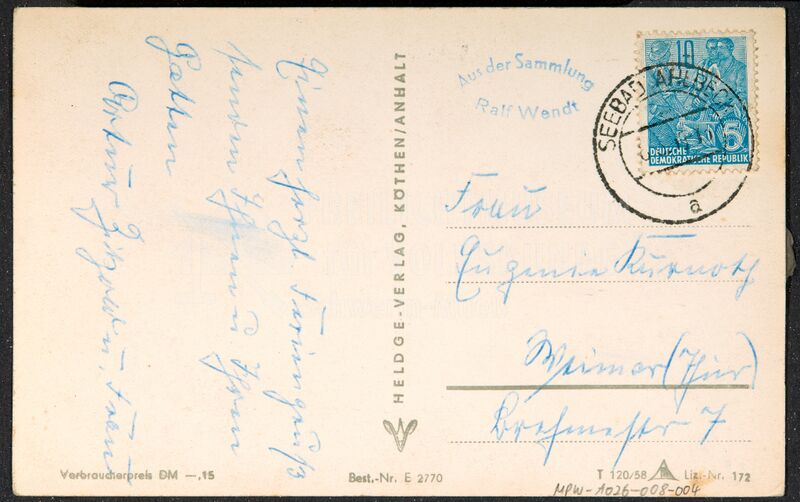 Einen herzl. Feriengruß
senden Ihnen u. Ihrem
Gatten
Artur u. Frau
HELDGE-VERLAG, KÖTHEN/ANHALT
Aus der Sammlung
Ralf Wendt
10
5
DEUTSCHE
DEMOKRATISCHE REPUBLIK
SEEBAD AHLBECK
a
Frau
Eugenie Kurnoth
Weimar (Thür)
7
Verbraucherpreis DM —,15
Best.-Nr. E 2770
T 120/58
Liz.-Nr. 172
MPW-A026-008-004